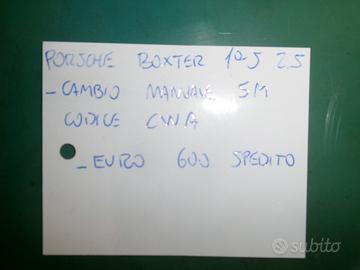 PORSCHE BOXTER 1aS 2.5
- CAMBIO MANUALE 5M
CODICE CWA
- EURO 600 SPEDITO
subito